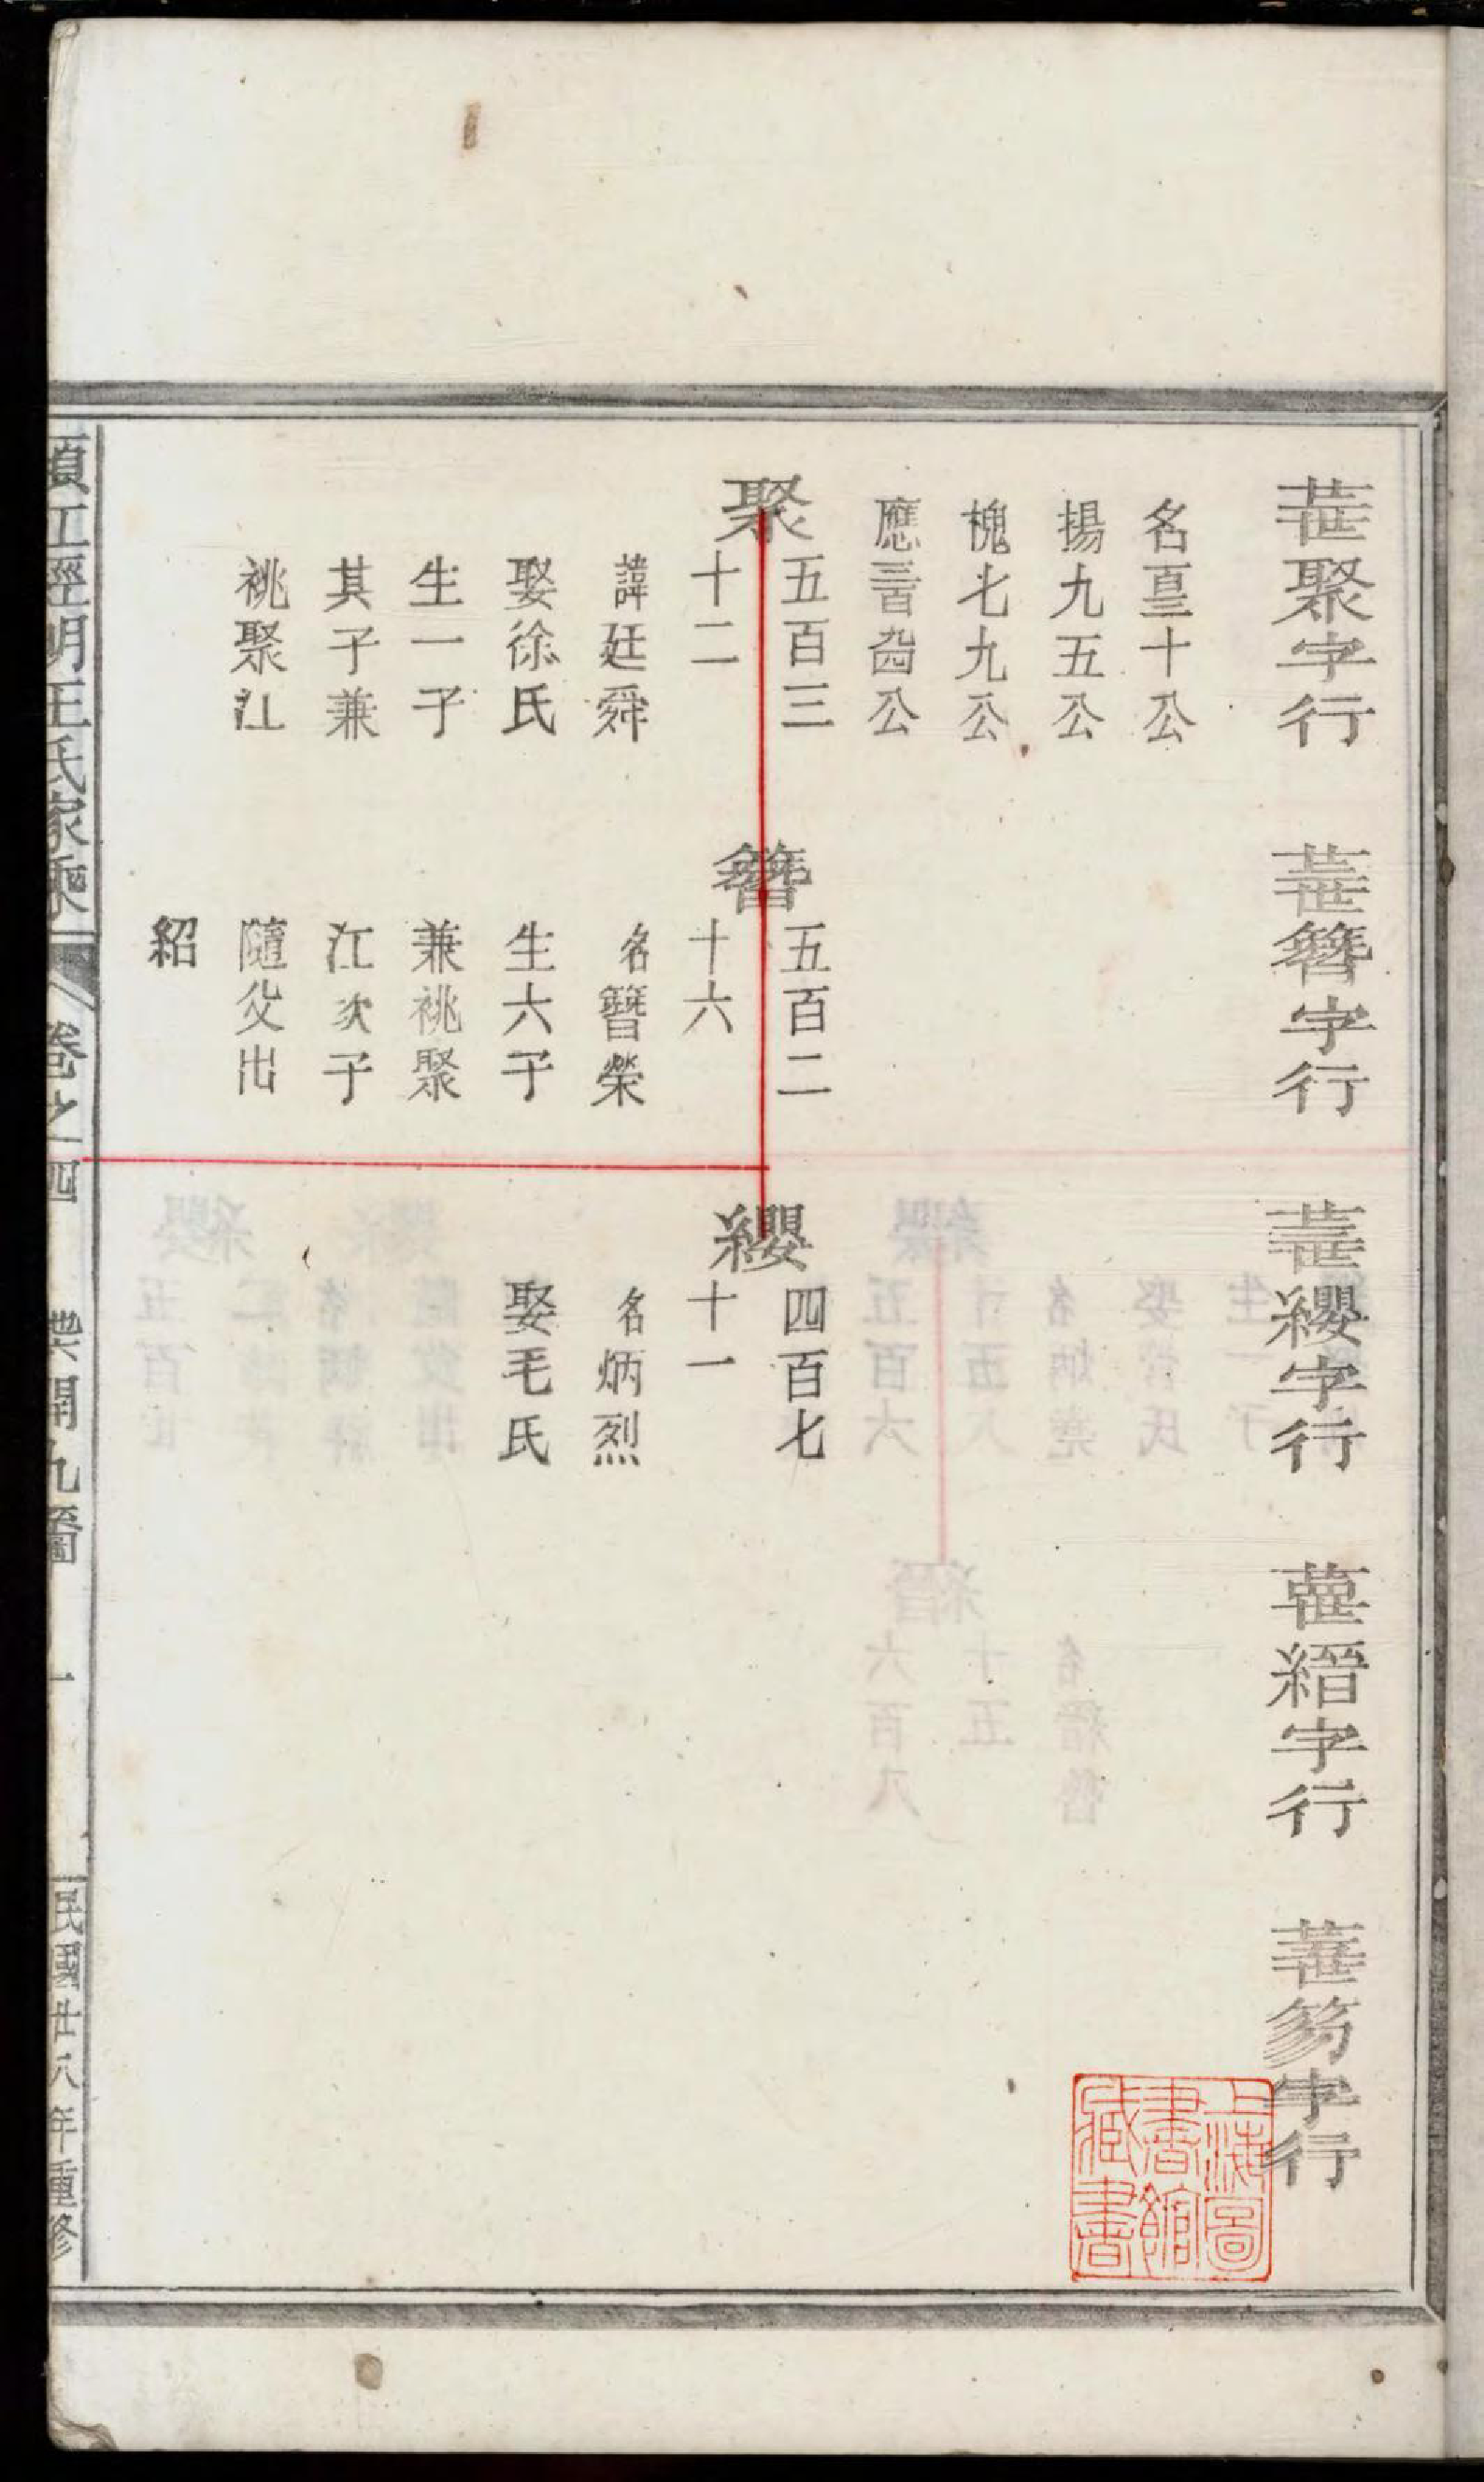 聚字行
簪字行
纓字行
縉字行
笏字行
名百三十公
揚九五公
槐七九公
應三百公
聚 五百三十二
諱廷舜
娶徐氏
生一子
其子兼
祧聚江
簪 五百二十六
名簪榮
生六子
兼祧聚
江次子
隨父出
紹
纓 四百七十一
名炳烈
娶毛氏
須江經明王氏家乘
卷之四
開九
一
民國廿八年重修
上海圖書館藏書